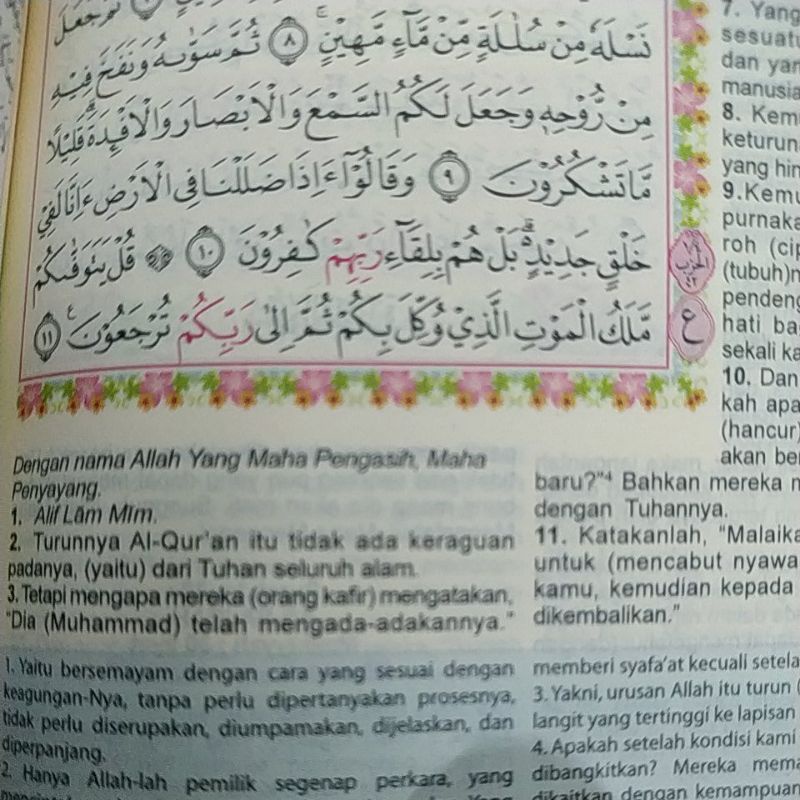 نَسْلَهٗ مِنْ سُلٰلَةٍ مِّنْ مَّآءٍ مَّهِيْنٍ ۚ ٨ ثُمَّ سَوّٰىهُ وَنَفَخَ فِيْهِ
مِنْ رُّوْحِهٖ وَجَعَلَ لَكُمُ السَّمْعَ وَالْاَبْصَارَ وَالْاَفْـِٕدَةَۗ قَلِيْلًا
مَّا تَشْكُرُوْنَ ٩ وَقَالُوْٓا ءَاِذَا ضَلَلْنَا فِى الْاَرْضِ ءَاِنَّا لَفِيْ
خَلْقٍ جَدِيْدٍ ۗ بَلْ هُمْ بِلِقَاۤءِ رَبِّهِمْ كٰفِرُوْنَ ١٠ قُلْ يَتَوَفّٰىكُمْ
مَّلَكُ الْمَوْتِ الَّذِيْ وُكِّلَ بِكُمْ ثُمَّ اِلٰى رَبِّكُمْ تُرْجَعُوْنَ ١١
الحزب
٤٢
ع
Dengan nama Allah Yang Maha Pengasih, Maha
Penyayang.
1. Alif Lām Mīm.
2. Turunnya Al-Qur'an itu tidak ada keraguan
padanya, (yaitu) dari Tuhan seluruh alam.
3. Tetapi mengapa mereka (orang kafir) mengatakan,
"Dia (Muhammad) telah mengada-adakannya."
7. Yang
sesuatu
dan yan
manusia
8. Kemu
keturuna
yang hin
9. Kemu
purnaka
roh (cip
(tubuh)n
pendeng
hati ba
sekali ka
10. Dan
kah apa
(hancur)
akan be
baru?"4 Bahkan mereka m
dengan Tuhannya.
11. Katakanlah, "Malaika
untuk (mencabut nyawa
kamu, kemudian kepada
dikembalikan."
1. Yaitu bersemayam dengan cara yang sesuai dengan
keagungan-Nya, tanpa perlu dipertanyakan prosesnya,
tidak perlu diserupakan, diumpamakan, dijelaskan, dan
diperpanjang.
2. Hanya Allah-lah pemilik segenap perkara, yang
memberi syafa'at kecuali setela
3. Yakni, urusan Allah itu turun (
langit yang tertinggi ke lapisan
4. Apakah setelah kondisi kami
dibangkitkan? Mereka mema
dikaitkan dengan kemampuan